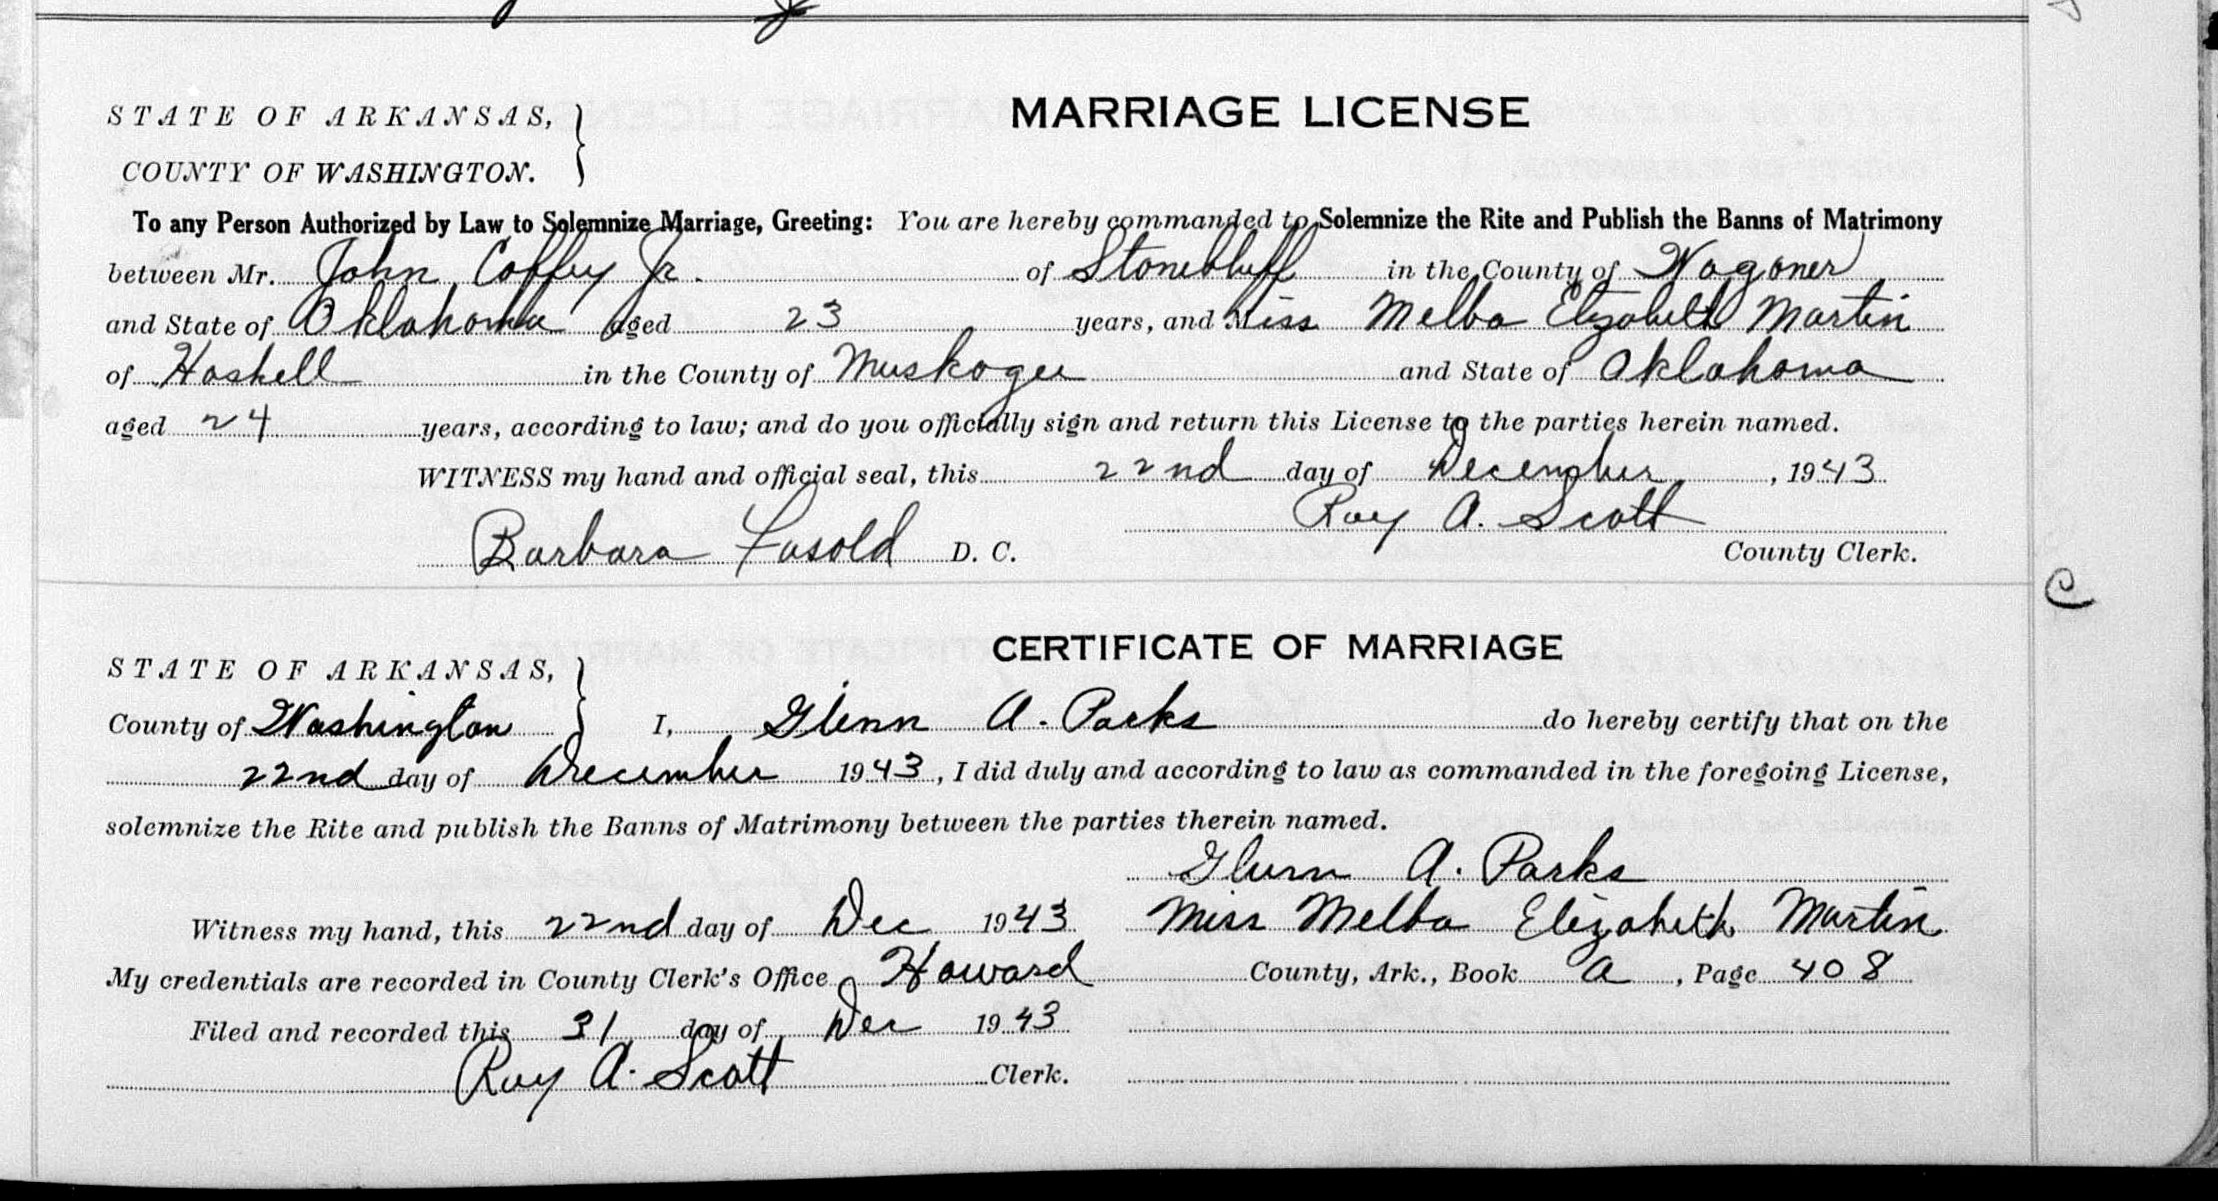 MARRIAGE LICENSE
STATE OF ARKANSAS,
COUNTY OF WASHINGTON.
To any Person Authorized by Law to Solemnize Marriage, Greeting: You are hereby commanded to Solemnize the Rite and Publish the Banns of Matrimony
between Mr. John Coffey Jr. of Stonebluff in the County of Wagoner
and State of Oklahoma aged 23 years, and Miss Melba Elizabeth Martin
of Haskell in the County of Muskogee and State of Oklahoma
aged 24 years, according to law; and do you officially sign and return this License to the parties herein named.
WITNESS my hand and official seal, this 22nd day of December, 1943
Roy A. Scott
Barbara Fasold D. C. County Clerk.
C
CERTIFICATE OF MARRIAGE
STATE OF ARKANSAS,
County of Washington I, Glenn A. Parks do hereby certify that on the
22nd day of December 1943, I did duly and according to law as commanded in the foregoing License,
solemnize the Rite and publish the Banns of Matrimony between the parties therein named.
Glenn A. Parks
Witness my hand, this 22nd day of Dec 1943 Miss Melba Elizabeth Martin
My credentials are recorded in County Clerk's Office Howard County, Ark., Book A, Page 408
Filed and recorded this 31 day of Dec 1943
Roy A. Scott Clerk.